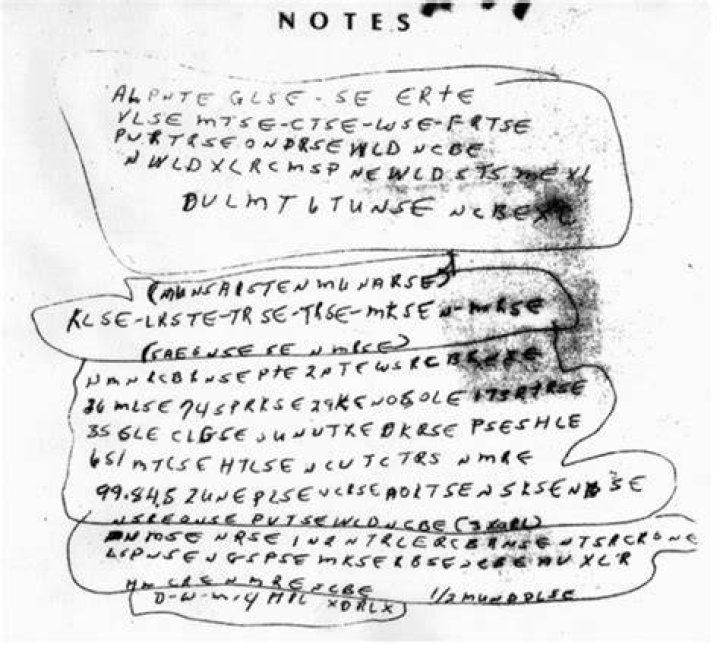 NOTES
ALPNTE GLSE - SE ERTE
VLSE MTSE-CTSE-WSE-FRTSE
PNRTRSE ONDRSE WLD NCBE
N WLD XLRCMSP NEWLD STS ME XL
DULMT 6 TUNSE NCBE XC
(MUNSAISTEN MU NARSE)
KLSE-LRSTE-TRSE-TRSE-MKSEN-MRSE
(SAE6NSE SE N MRSE)
NMNRCBRNSE PTE 2PTE WSRCBRNSE
36 MLSE 74 SPRKSE 29KENOSOLE 173RTRSE
35 GLE CLGSE UNUTXE DKRSE PSESHLE
651 MTCSE HTLSE NCUTCTRS NMRE
99.84.5 2UNE PLSE NCRSE AOLTSE NSKSE NBSE
NSREONSE PVTSE WLD NCBE (3XORL)
NMSE NRSE IN2 NTRLERCBRNSE NTSRCRBNE
LSPNSE NGSPSE MKSERBSE NCBE AU XLR
HM CRE NMRE NCBE 1/2 MUNDDLSE
D-W-M-4 HPL XDRLX